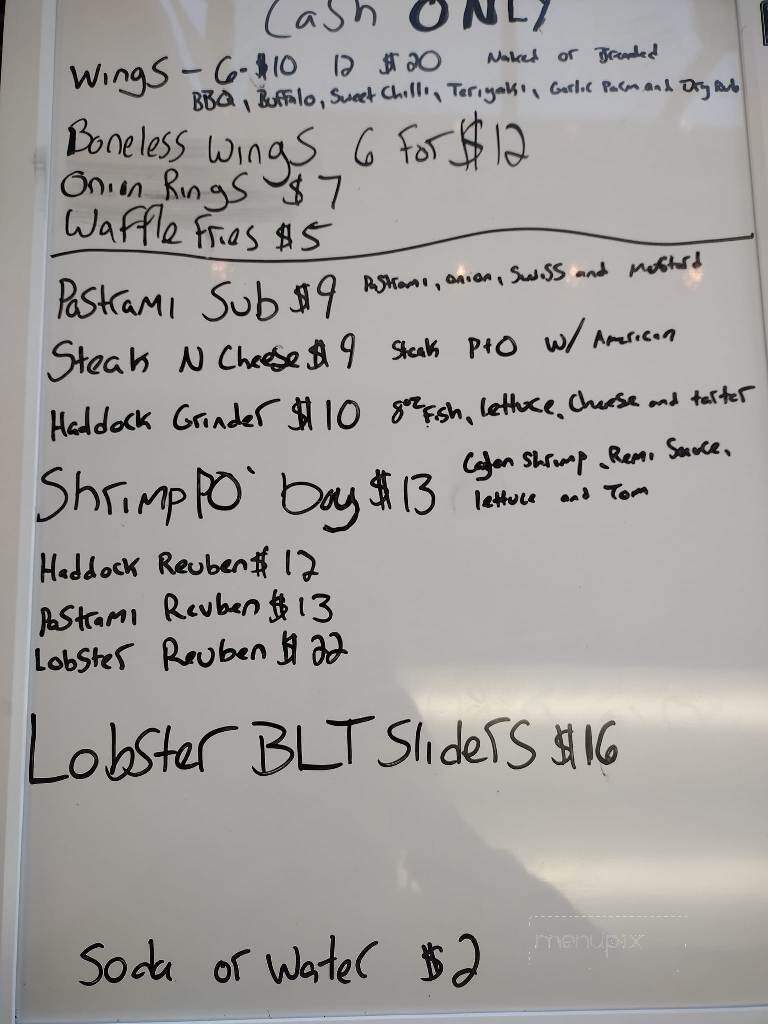 Cash ONLY
Wings - 6-$10 12 $20 Naked or Breaded
BBQ, Buffalo, Sweet Chilli, Teriyaki, Garlic Parm and Dry Rub
Boneless wings 6 For $12
Onion Rings $7
Waffle Fries $5
Pastrami Sub $9 Pastrami, onion, Swiss and Mustard
Steak N Cheese $9 Steak P+O W/ American
Haddock Grinder $10 8oz Fish, lettuce, Cheese and tarter
Shrimp PO' boy $13 Cajen Shrimp, Remi Sauce,
lettuce and Tom
Haddock Reuben $12
Pastrami Reuben $13
Lobster Reuben $22
Lobster BLT Sliders $16
menupix
Soda or Water $2